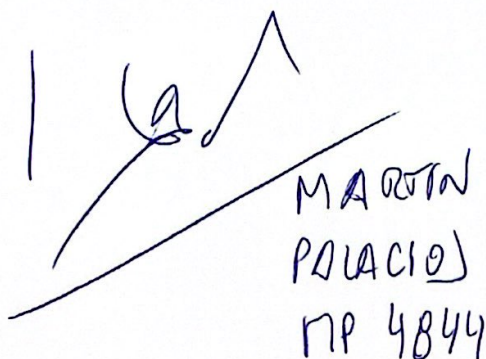 MARTIN
PALACIOS
MP 4844